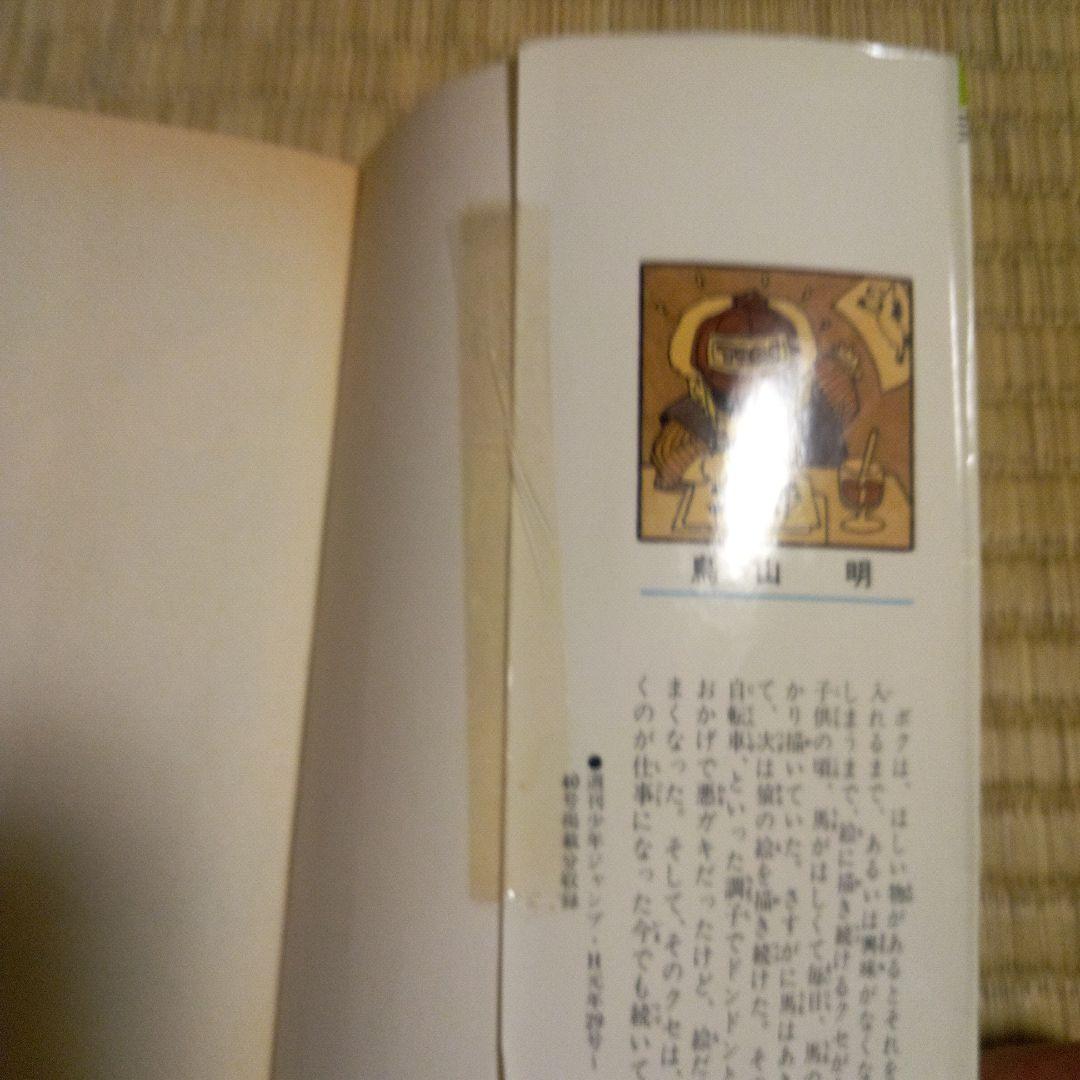 鳥山 明
ボクは、ほしい物があるとそれを
入れるまで、あるいは興味がなくな
しまうまで、絵に描き続けるクセが
子供の頃、馬がほしくて毎日、馬の
かり描いていた。さすがに馬はあき
て、次は猿の絵を描き続けた。そ
自転車、といった調子でドンドンと
おかげで悪ガキだったけど、絵だ
まくなった。そして、そのクセは、
くのが仕事になった今でも続いて
●週刊少年ジャンプ・H元年29号〜
40号掲載分収録